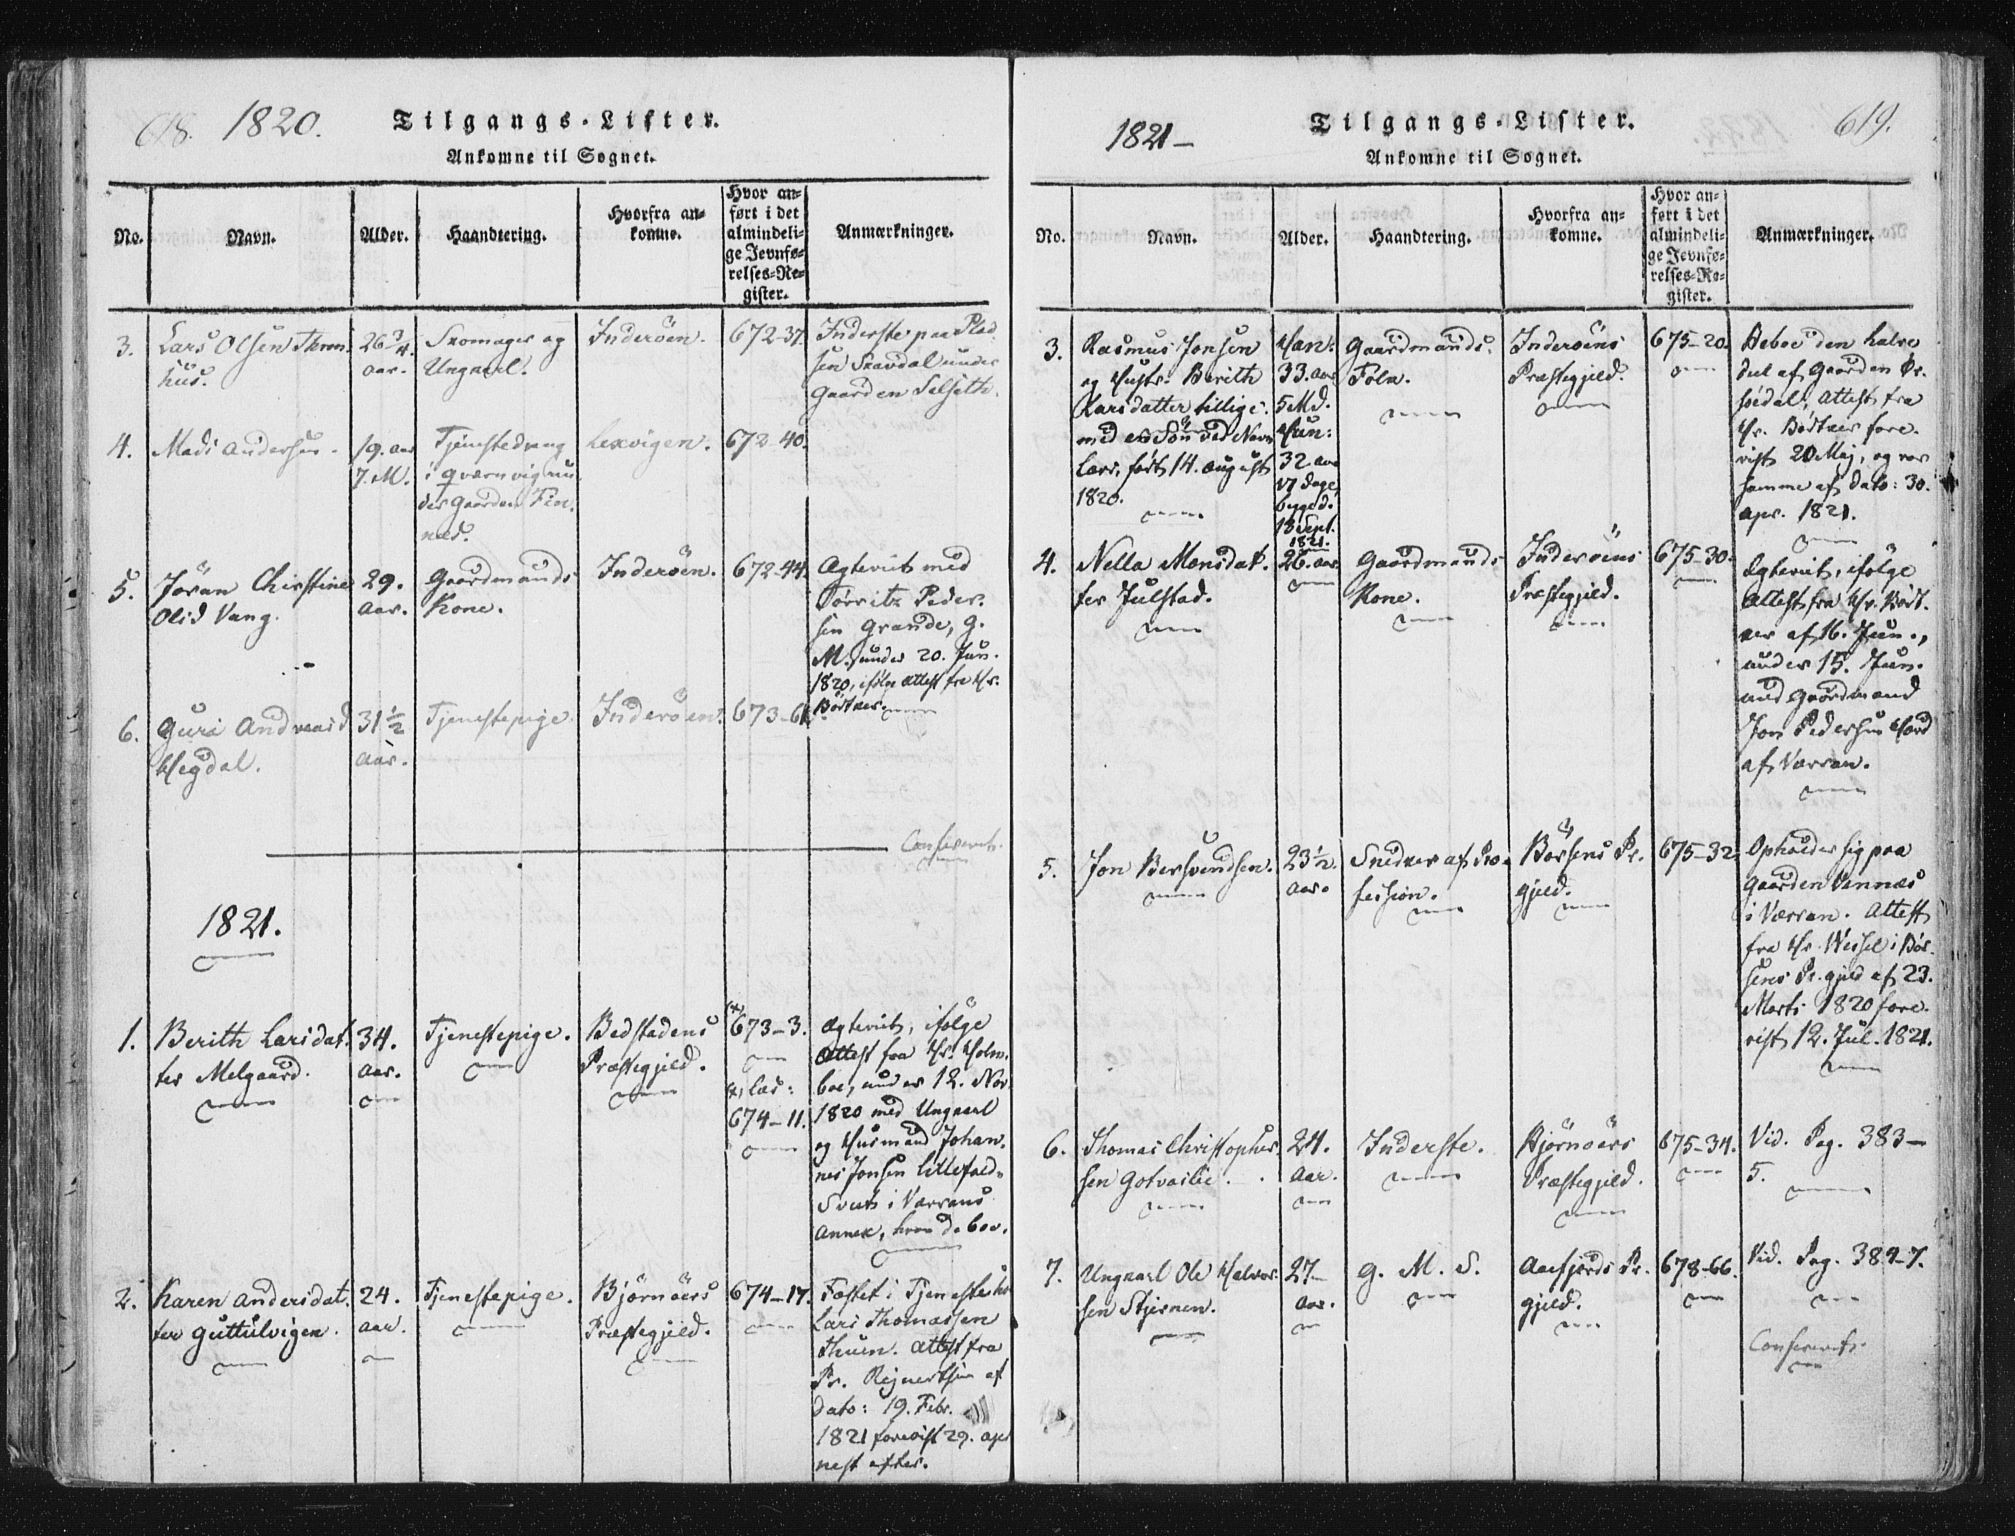 618. 1820. Tilgangs-Lister.
Ankomne til Sognet.
No. Navn. Alder. Haandtering. Hvorfra an=
komne. Hvor an=
ført i det
almindeli=
ge Jevnfø=
relses=Re=
gister. Anmærkninger.
3. Lars Olsen
huus. 26 3/4
aar. Skomager og
Ungkarl. Inderöen. 672-37. Inderste paa Plad
sen under
Gaarden Selseth.
4. Mads Andersen 19. aar
7. M. Tjenestedreng
i Qværnvig un
der Gaarden
Lexvigen. 672-40.
5. Jöran Christine
Olid Vang. 29.
aar. Gaardmands
Kone. Inderöen. 672-44. Ægteviet med
Peder
sen Grande, G.
M. under 20. Jun.
1820, ifølge Attest fra Hr.
Bödtker.
6. Guri Andreasd
Hegdal. 31 1/2
aar. Tjenestepige. Inderöen. 673-61.
Confereret.
1821.
1. Berith Larsdat
ter Melgaard. 34.
aar. Tjenestepige. Bedstadens
Præstegjeld. 673-3.
læs:
674-11. Ægteviet, ifølge
Attest fra Hr. Holm
boe, under 12. Nov.
1820 med Ungkarl
og Husmand Johan
nes Jonsen Lillefald
i Værrans
Annex, hvor de boe.
2. Karen Andersdat
ter Guttulvigen. 24.
aar. Tjenestepige. Björnöers
Præstegjeld. 674-17. Fæstet i Tjeneste hos
Lars Thomassen
Thuen. Attest fra
Pr. Rejnertsen af
dato: 19. Febr.
1821 foreviist 29. apr
nest efter.
1821 Tilgangs-Lister. 619.
Ankomne til Sognet.
No. Navn. Alder. Haandtering. Hvorfra an=
komne. Hvor an=
ført i det
almindeli=
ge Jevnfø=
relses=Re=
gister. Anmærkninger.
3. Rasmus Jonsen
og Hustr. Berith
Larsdatter tillige
med en Søn ved Navn
Lars, født 14. August
1820. Han:
33. aar
5 Md.
Hun:
32. aar
17 dage,
13 Sept.
1821. Gaardmands
Folk. Inderöens
Præstegjeld. 675-20. Beboe den halve
deel af Gaarden
Attest fra
Hr. Bödtker fore
vist 20 Maj, og var
samme af dato: 30.
apr. 1821.
4. Nella Monsdat
ter Julstad. 26. aar Gaardmands
Kone. Inderöens
Præstegjeld. 675-30. Ægteviet, ifølge
Attest fra Hr. Bödt
ker af 16. Jun.,
under 15. Jun.
med Gaardmand
Jon Pedersen
af Værran.
5. Jon Bersvendsen. 23 1/2.
aar. Snedker af Pro
fession. Börsens Pr.
gjeld. 675-32 Opholder sig paa
Gaarden Vennæs
i Værran. Attest
fra Hr. Wessel i Bör
sens Pr.gjeld af 23.
Marti 1820 fore
vist 12. Jul. 1821.
6. Thomas Christopher
sen Gotvaslie. 24.
aar. Inderste. Björnöers
Præstegjeld. 675-34. Vid. Pag. 383-
5.
7. Ungkarl Ole Halvor
sen Stjernen. 27-
aar. G. M. S. Aafjords Pr.
gjeld. 678-66. Vid. Pag. 384-7.
Confereret.